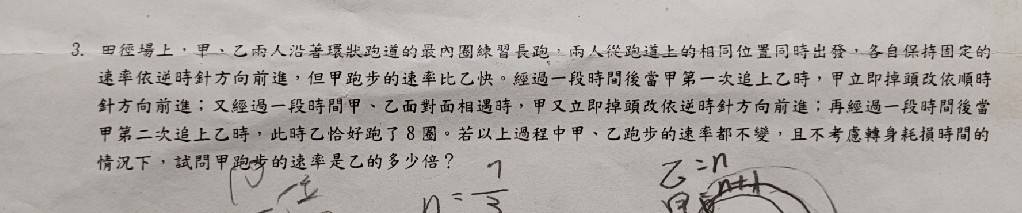 3. 田徑場上，甲、乙兩人沿著環狀跑道的最內圈練習長跑，兩人從跑道上的相同位置同時出發，各自保持固定的
速率依逆時針方向前進，但甲跑步的速率比乙快。經過一段時間後當甲第一次追上乙時，甲立即掉頭改依順時
針方向前進；又經過一段時間甲、乙面對面相遇時，甲又立即掉頭改依逆時針方向前進；再經過一段時間後當
甲第二次追上乙時，此時乙恰好跑了 8 圈。若以上過程中甲、乙跑步的速率都不變，且不考慮轉身耗損時間的
情況下，試問甲跑步的速率是乙的多少倍？
n = 7/3
乙=n
甲=n+1